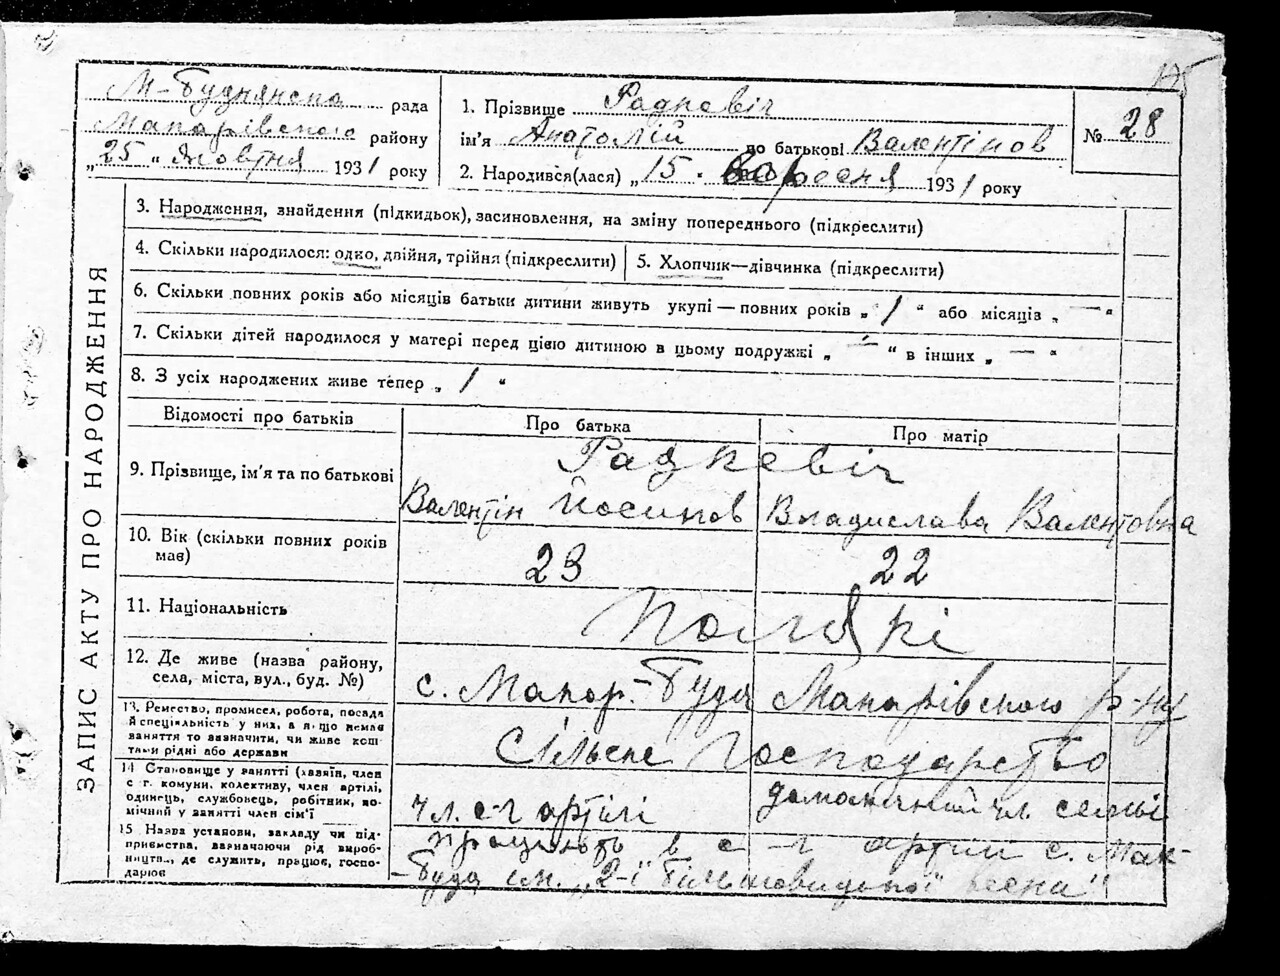 175
М-Буднянська рада
Макарівського району
„25" Жовтня 1931 року
1. Прізвище Радкевіч
ім'я Анатолій по батькові Валентінов
2. Народився(лася) „15" вересня 1931 року
№ 28
ЗАПИС АКТУ ПРО НАРОДЖЕННЯ
3. Народження, знайдення (підкидьок), засиновлення, на зміну попереднього (підкреслити)
4. Скільки народилося: одно, двійня, трійня (підкреслити)
5. Хлопчик—дівчинка (підкреслити)
6. Скільки повних років або місяців батьки дитини живуть укупі — повних років „ 1 " або місяців „ — "
7. Скільки дітей народилося у матері перед цією дитиною в цьому подружжі „ — " в інших „ — "
8. З усіх народжених живе тепер „ 1 "
Відомості про батьків
Про батька
Про матір
9. Прізвище, ім'я та по батькові
Радкевіч
Валентін Йосипов
Владислава Валентовна
10. Вік (скільки повних років
має)
23
22
11. Національність
Поляки
12. Де живе (назва району,
села, міста, вул., буд. №)
с. Макар.-Буда Макарівського р-ну
13. Ремество, промисел, робота, посада
й спеціяльність у них, а якщо немає
заняття то зазначити, чи живе кош-
тами рідні або держави
Сільске господарство
14 Становище у занятті (хазяїн, член
с г. комуни, колективу, член артілі,
одинець, службовець, робітник, по-
мічний у занятті член сім'ї
чл. с-г артілі
домашний чл. семьі
15 Назва установи, закладу чи під-
приємства, зазначаючи рід вироб-
ництва, де служить, працює, госпо-
дарює
працюють в с-г артіли с. Мак-
-Буда ім. „2-ї більшовицької весни"